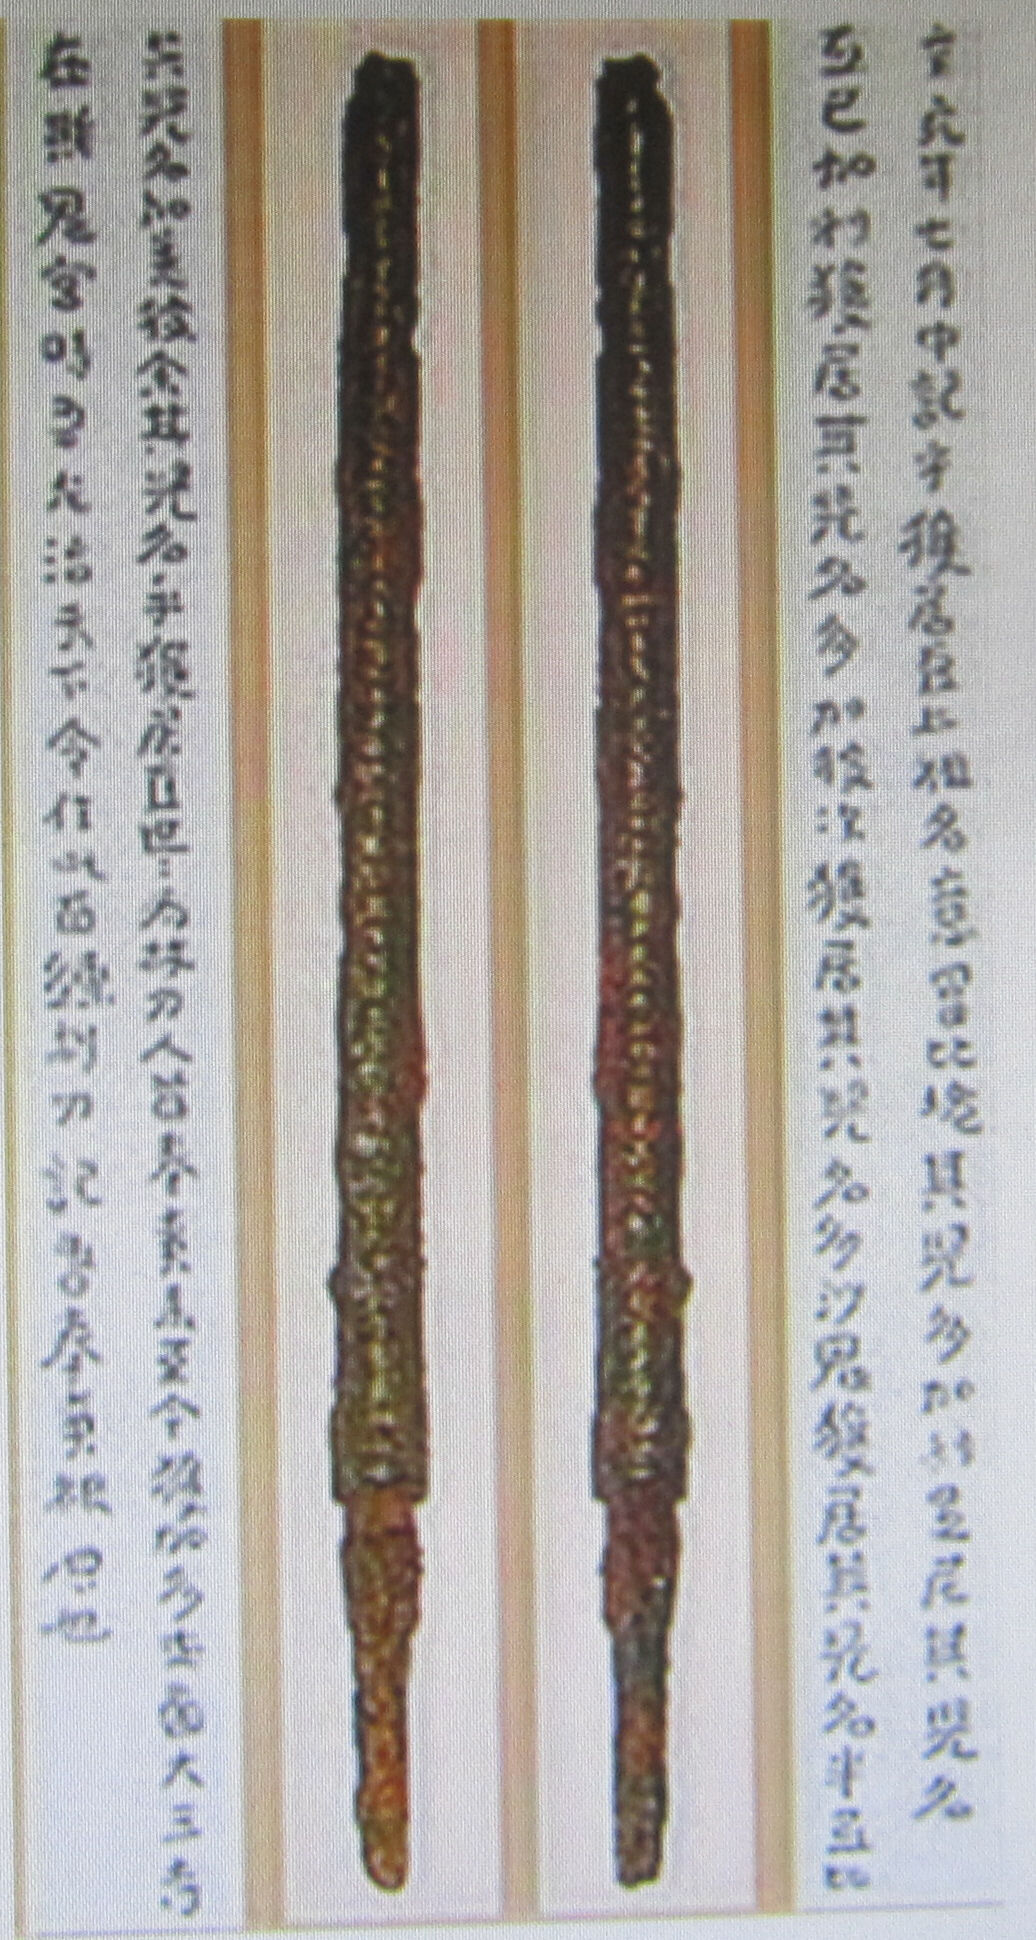 辛亥年七月中記乎獲居臣上祖名意富比垝其児多加利足尼其児名
弖已加利獲居其児名多加披次獲居其児名多沙鬼獲居其児名半弖比
其児名加差披余其児名乎獲居臣世々為杖刀人首奉事来至今獲加多支鹵大王寺
在斯鬼宮時吾左治天下令作此百練利刀記吾奉事根原也